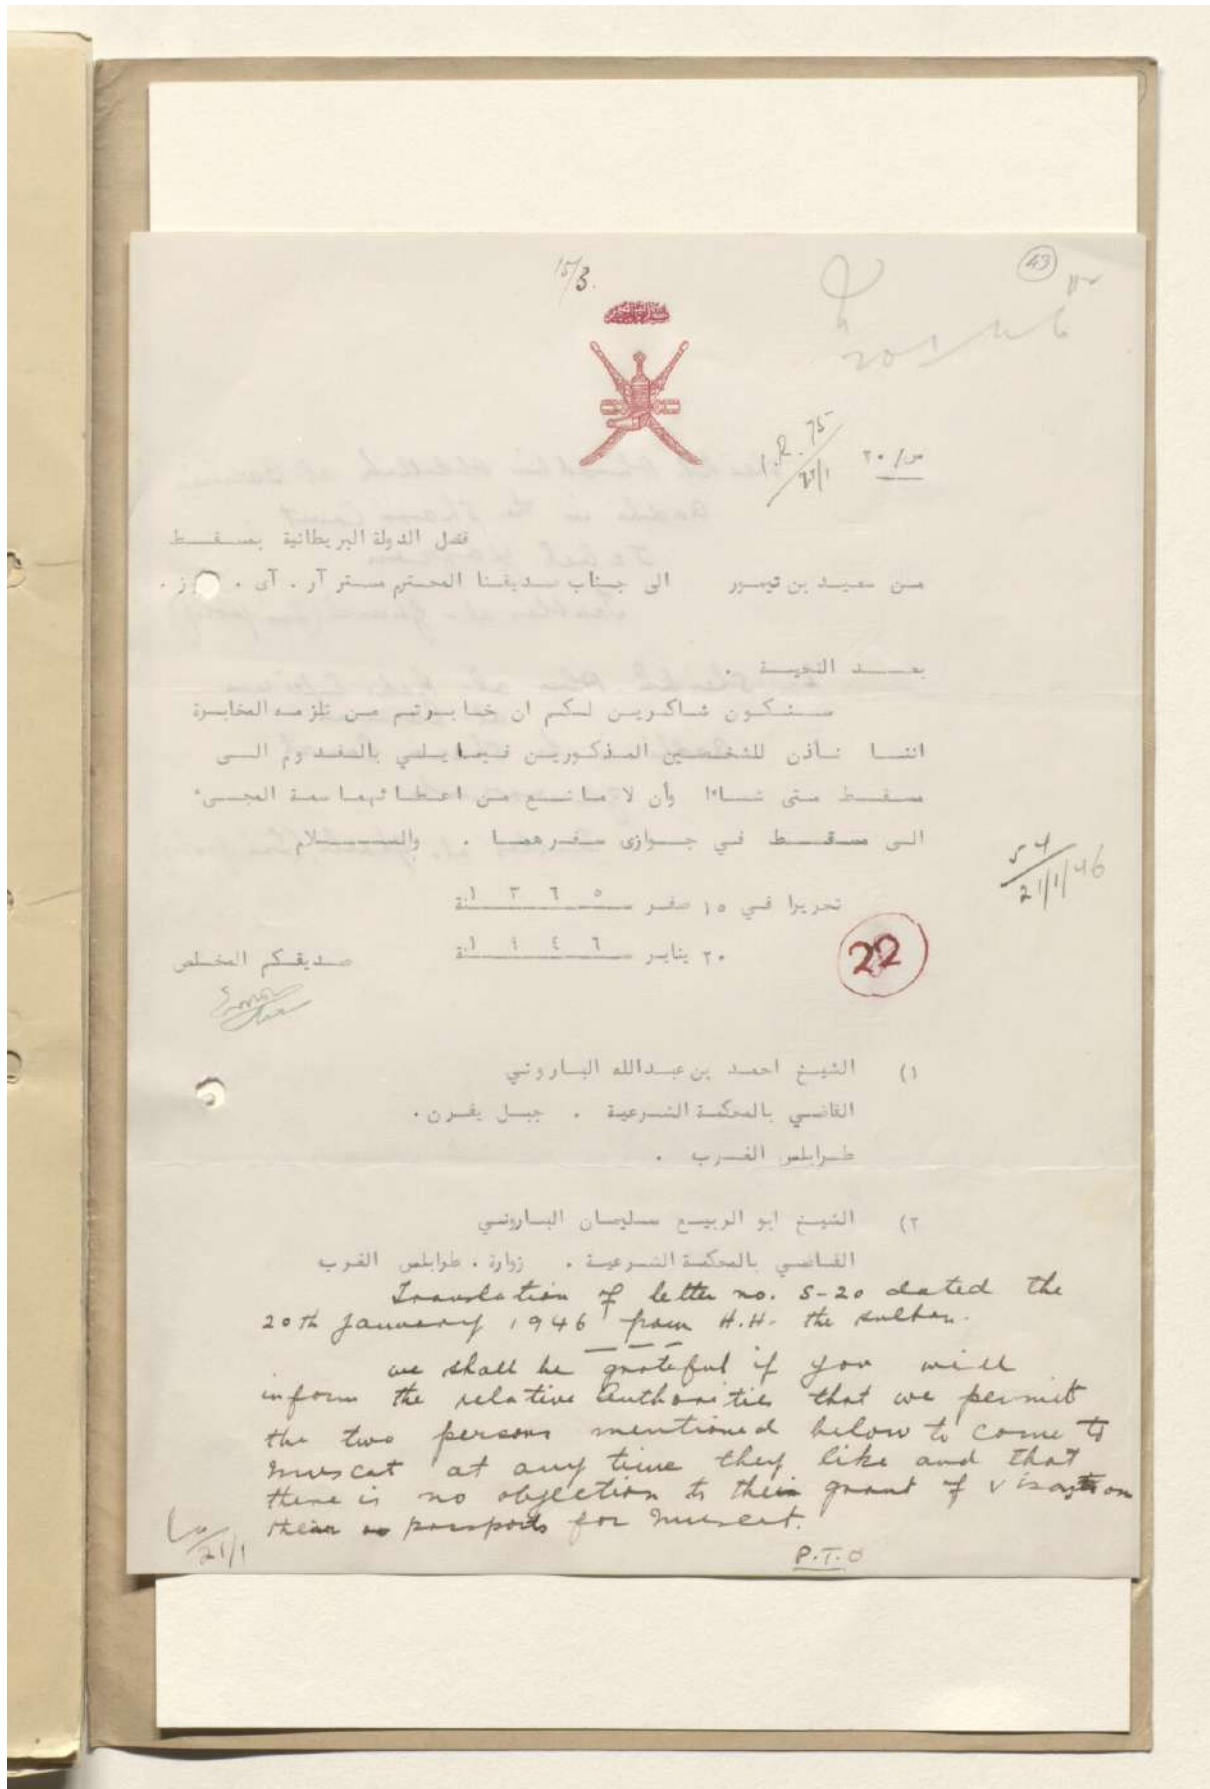 15/3.
43
20/1/46
I.R. 75
21/1
س/٢٠
قنصل الدولة البريطانية بمسقط
من سعيد بن تيمور الى جناب صديقنا المحترم مستر آر. آى.
بعد التحية .
سنكون شاكرين لكم ان خابرتم من تلزمه المخابرة
اننا نأذن للشخصين المذكورين فيما يلي بالقدوم الى
مسقط متى شاءا وأن لا مانع من اعطائهما سمة المجىء
الى مسقط في جوازى سفرهما . والسلام
54
21/1/46
تحريرا في ١٥ صفر سنة ١٣٦٥
٢٠ يناير سنة ١٩٤٦
22
صديقكم المخلص
١) الشيخ احمد بن عبدالله الباروني
القاضي بالمحكمة الشرعية . جبل يفرن.
طرابلس الغرب .
٢) الشيخ ابو الربيع سليمان الباروني
القاضي بالمحكمة الشرعية . زوارة . طرابلس الغرب
Translation of letter no. S-20 dated the
20th January 1946 from H.H. the sultan.
we shall be grateful if you will
inform the relative Authorities that we permit
the two persons mentioned below to come to
Muscat at any time they like and that
there is no objection to their grant of visas on
their passports for Muscat.
21/1
P.T.O